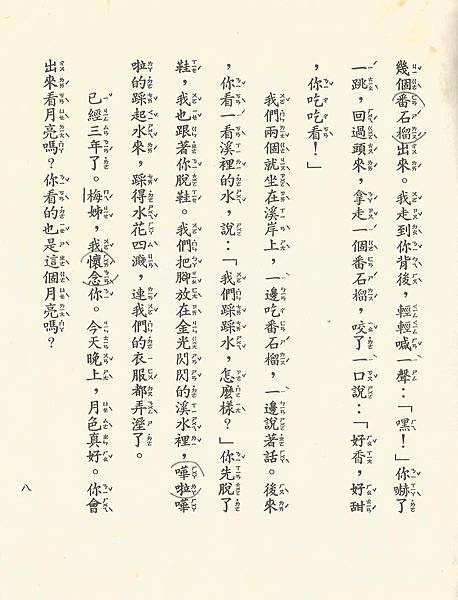 幾個番石榴出來。我走到你背後，輕輕喊一聲：「嘿！」你嚇了
一跳，回過頭來，拿走一個番石榴，咬了一口說：「好香，好甜
，你吃吃看！」
我們兩個就坐在溪岸上，一邊吃番石榴，一邊說著話。後來
，你看一看溪裡的水，說：「我們踩踩水，怎麼樣？」你先脫了
鞋，我也跟著你脫鞋。我們把腳放在金光閃閃的溪水裡，嘩啦嘩
啦的踩起水來，踩得水花四濺，連我們的衣服都弄溼了。
已經三年了。梅姊，我懷念你。今天晚上，月色真好。你會
出來看月亮嗎？你看的也是這個月亮嗎？
八